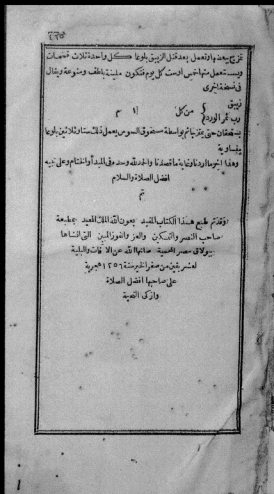 تمزج بعضها وتعمل بعد قتل الزيبق بلوعا كل واحدة ثلاث قمحات
ويستعمل منها خمس او ست كل يوم فتكون ملينة بلطف ومنوعة ويقال
فى نسخة اخرى
زيبق
رب ثمر الورد } من كل ا م
يسحقان حتى يمتزجا تم بواسطة مسحوق السوس يعمل ذلك ستا وثلاثين بلوعا
متساوية
وهذا آخر ما اردنا وغاية ما قصدنا والحمد لله وحده فى المبدأ والختام وعلى نبيه
افضل الصلاة والسلام
تم
وقد تم طبع هذا الكتاب المفيد بعون الله الملك المعيد بمطبعة
صاحب النصر والتمكين والعز والفوز المبين التى انشاها
ببولاق مصر المحمية صانها الله عن الآفات والبلية
لعشر بقين من صفر الخير سنة ١٢٥٦ هجرية
على صاحبها افضل الصلاة
وازكى التحية